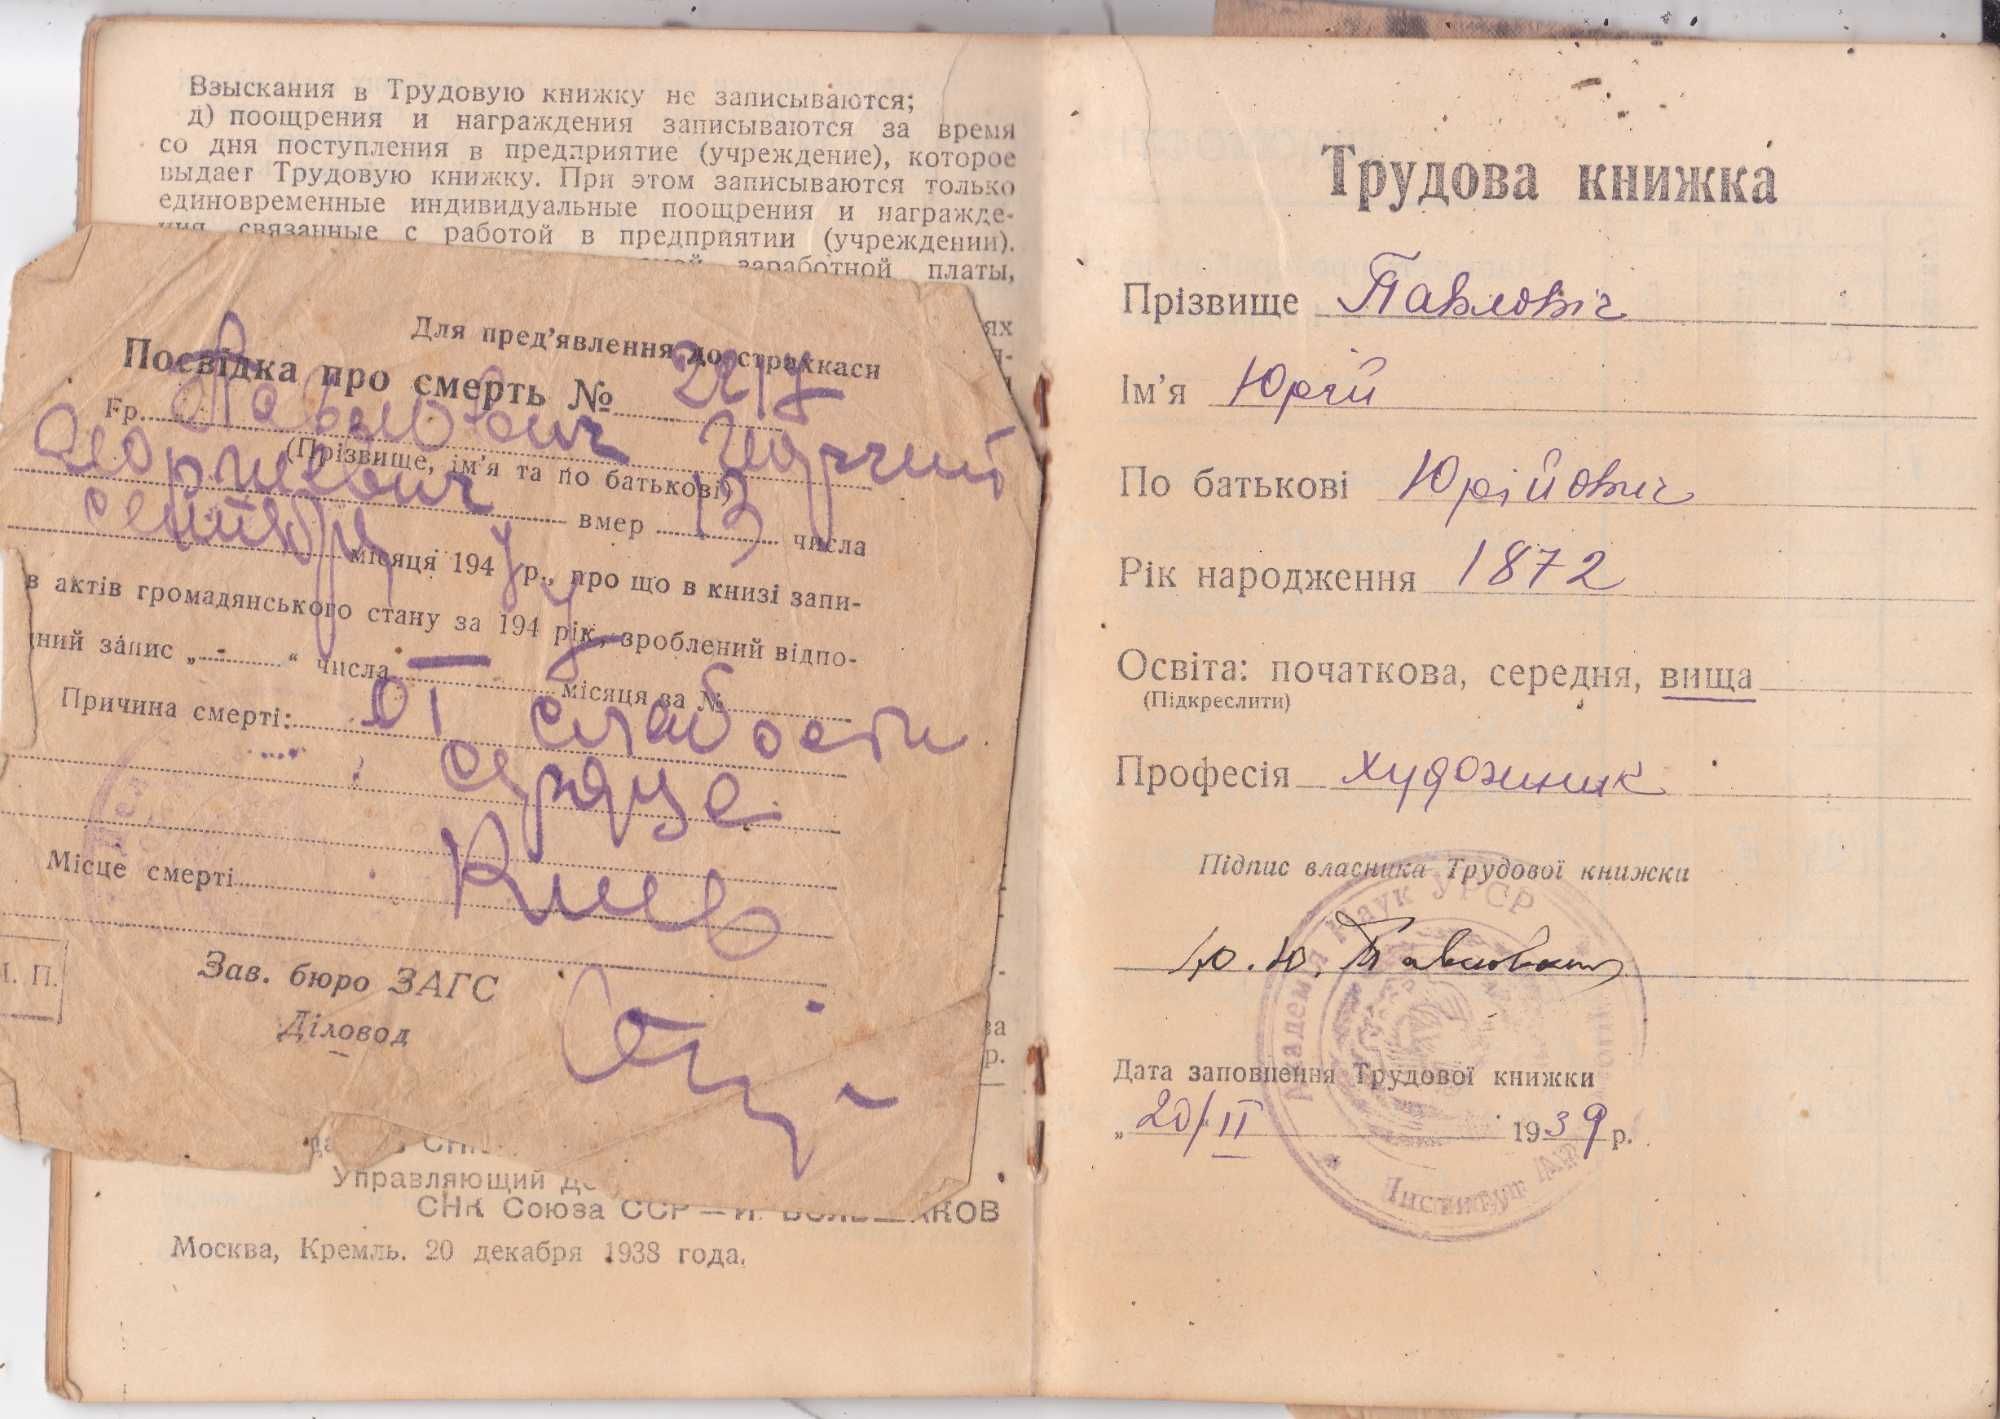 Взыскания в Трудовую книжку не записываются;
д) поощрения и награждения записываются за время
со дня поступления в предприятие (учреждение), которое
выдает Трудовую книжку. При этом записываются только
единовременные индивидуальные поощрения и награжде-
ния, связанные с работой в предприятии (учреждении).
заработной платы,
Для пред'явлення до страхкаси
Посвідка про смерть № 2217
Гр. Павлович Юрий
(Прізвище, ім'я та по батькові)
вмер 13 числа
місяця 194 р., про що в книзі запи-
в актів громадянського стану за 194 рік, зроблений відпо-
дний запис „ — “ числа — місяця за №
Причина смерті: от слабости
сердце
Місце смерті Киев
М. П.
Зав. бюро ЗАГС
Діловод
Управляющий
СНК Союза ССР — И. БОЛЬШАКОВ
Москва, Кремль. 20 декабря 1938 года.
Трудова книжка
Прізвище Павловіч
Ім'я Юрій
По батькові Юрійович
Рік народження 1872
Освіта: початкова, середня, вища
(Підкреслити)
Професія художник
Підпис власника Трудової книжки
Ю. Ю. Павлович
Академія Наук УРСР
Институт
Дата заповнення Трудової книжки
„ 20/II 1939 р.